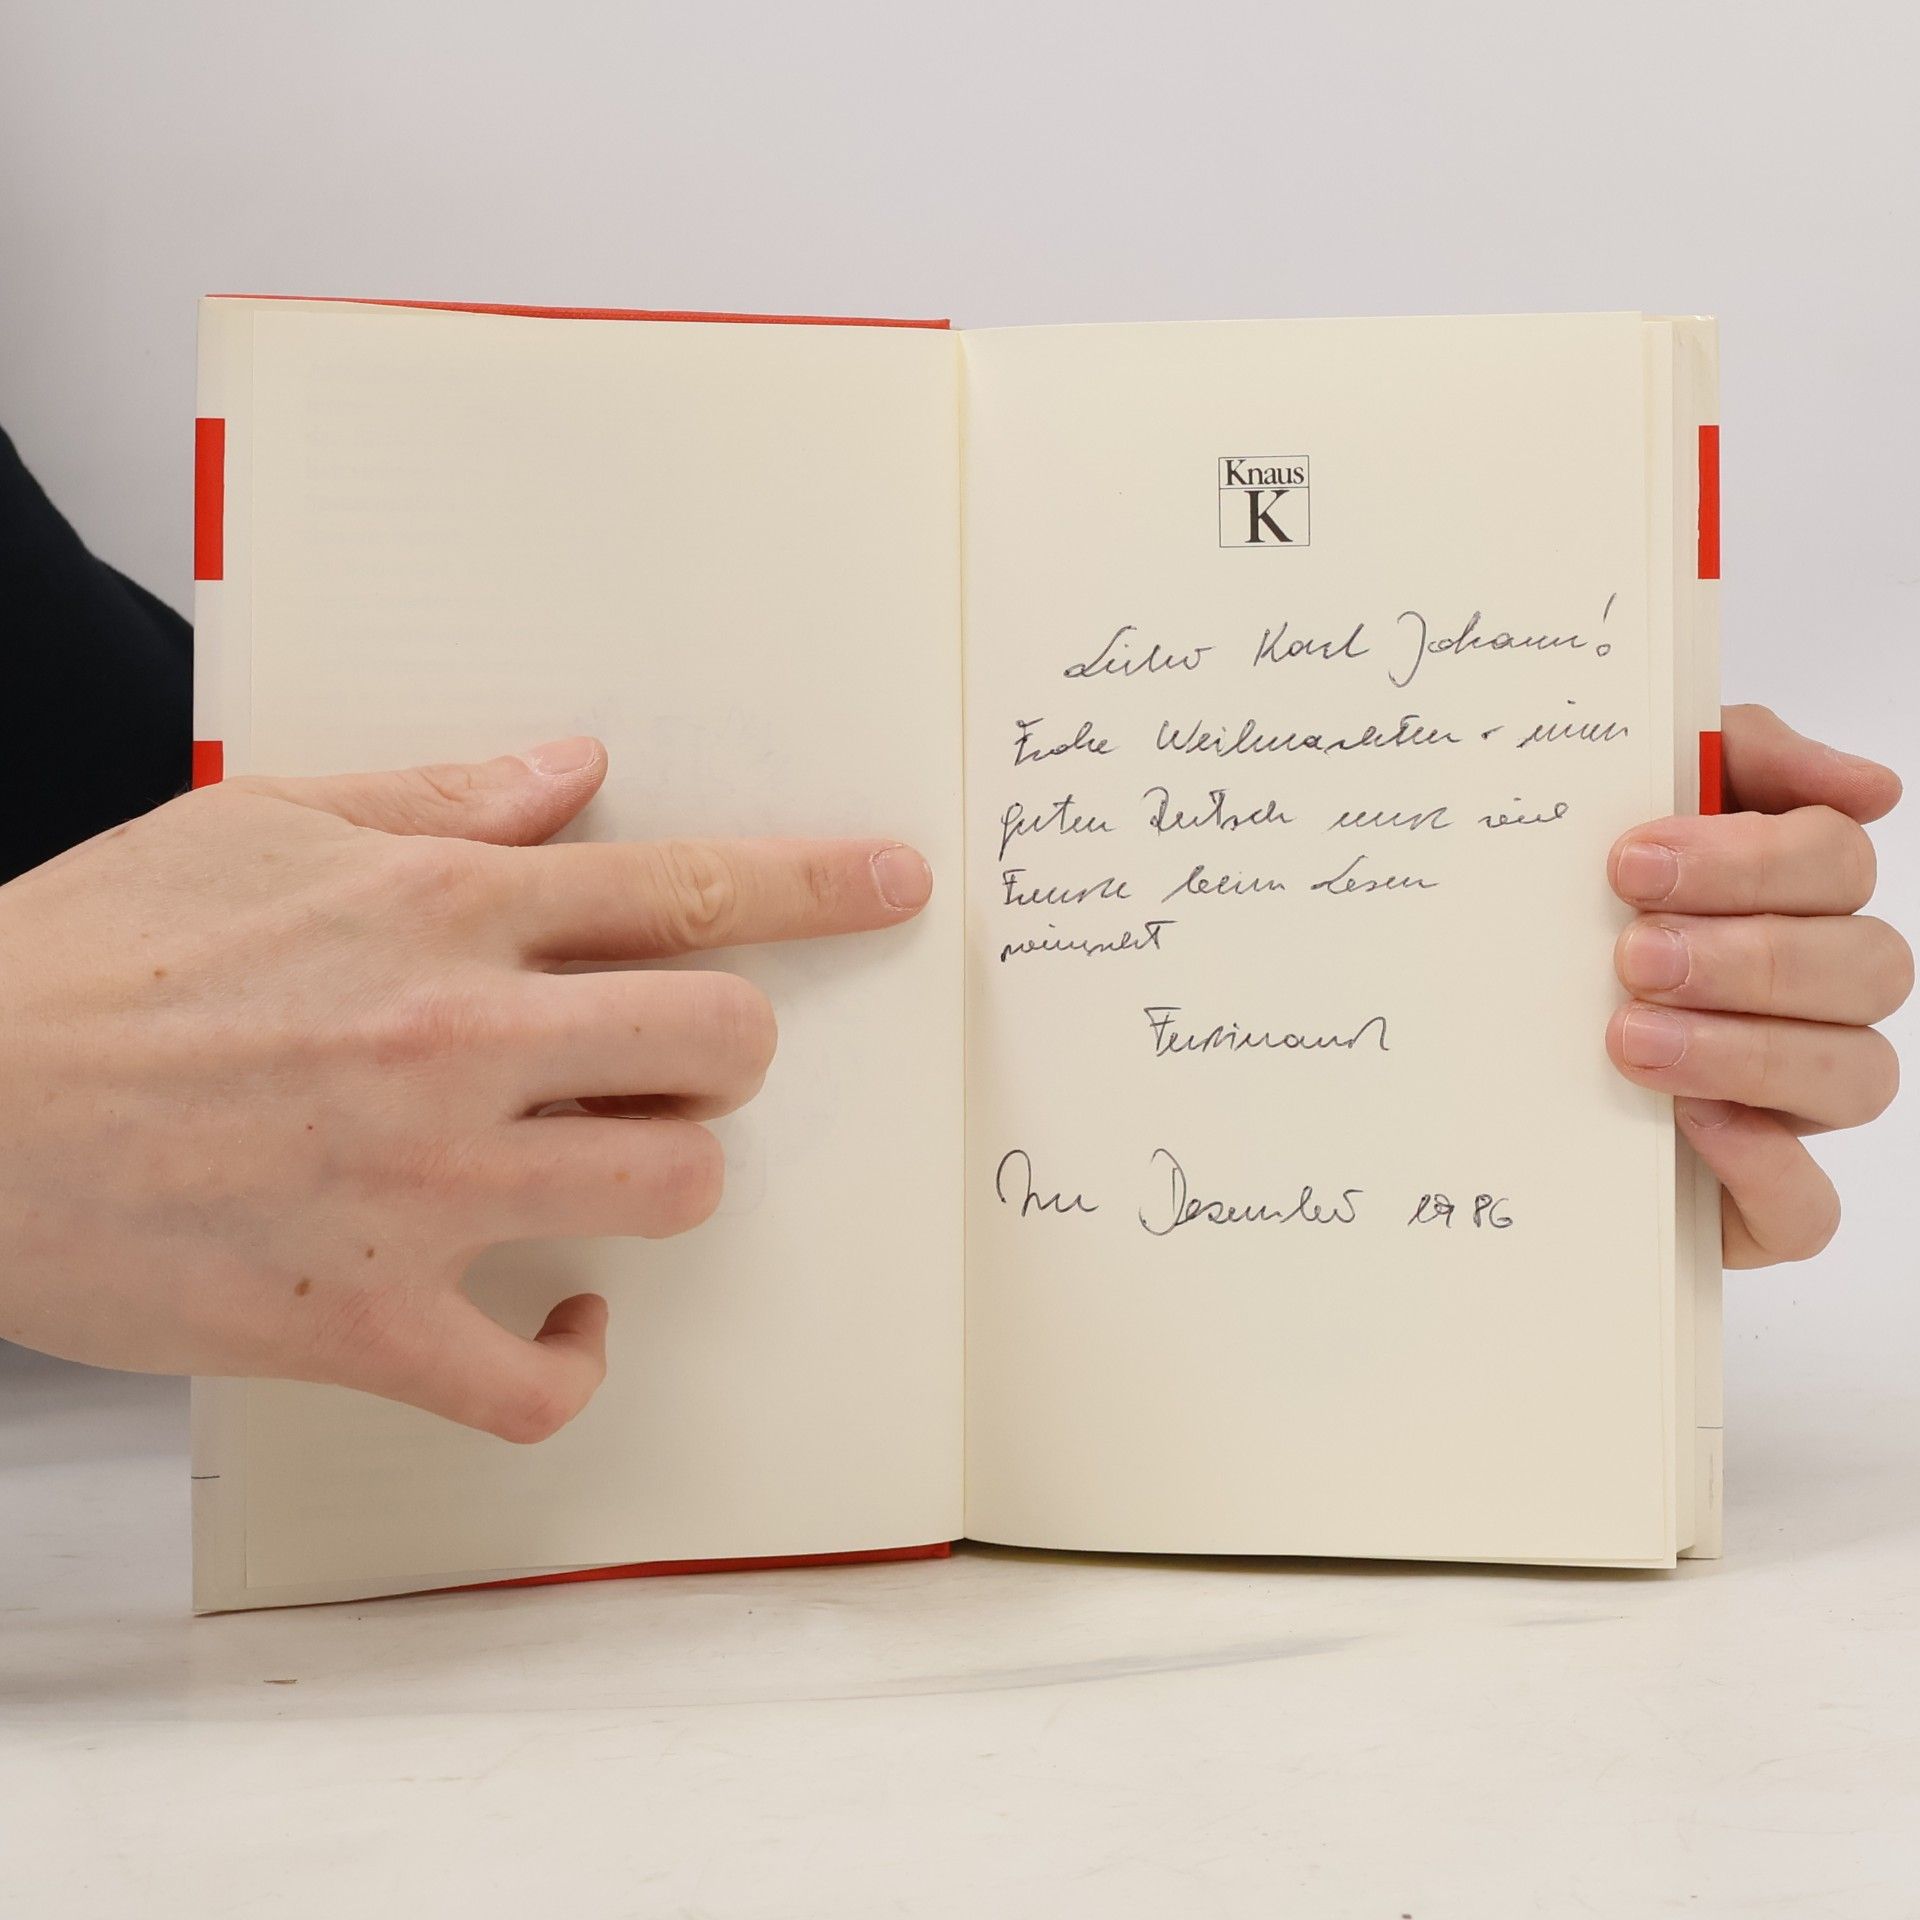 Knaus
K
Lieber Karl Johann!
Frohe Weihnachten - einen
guten Rutsch und viel
Freude beim Lesen
wünscht
Ferdinand
Im Dezember 1986